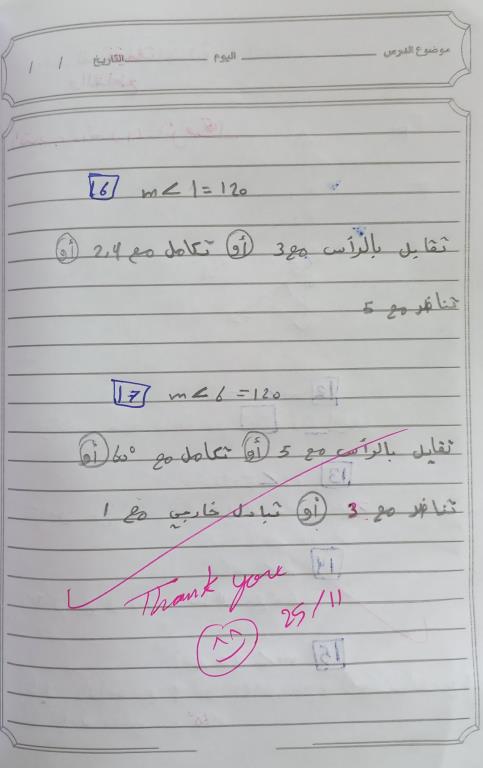 موضوع الدرس اليوم التاريخ / /
16 m< 1 = 120
تقابل بالرأس مع 3 أو تكامل مع 2,4 أو
تناظر مع 5
17 m< 6 = 120
تقابل بالرأس مع 5 أو تكامل مع 60° أو
تناظر مع 3 أو تبادل خارجي مع 1
Thank you
25/11